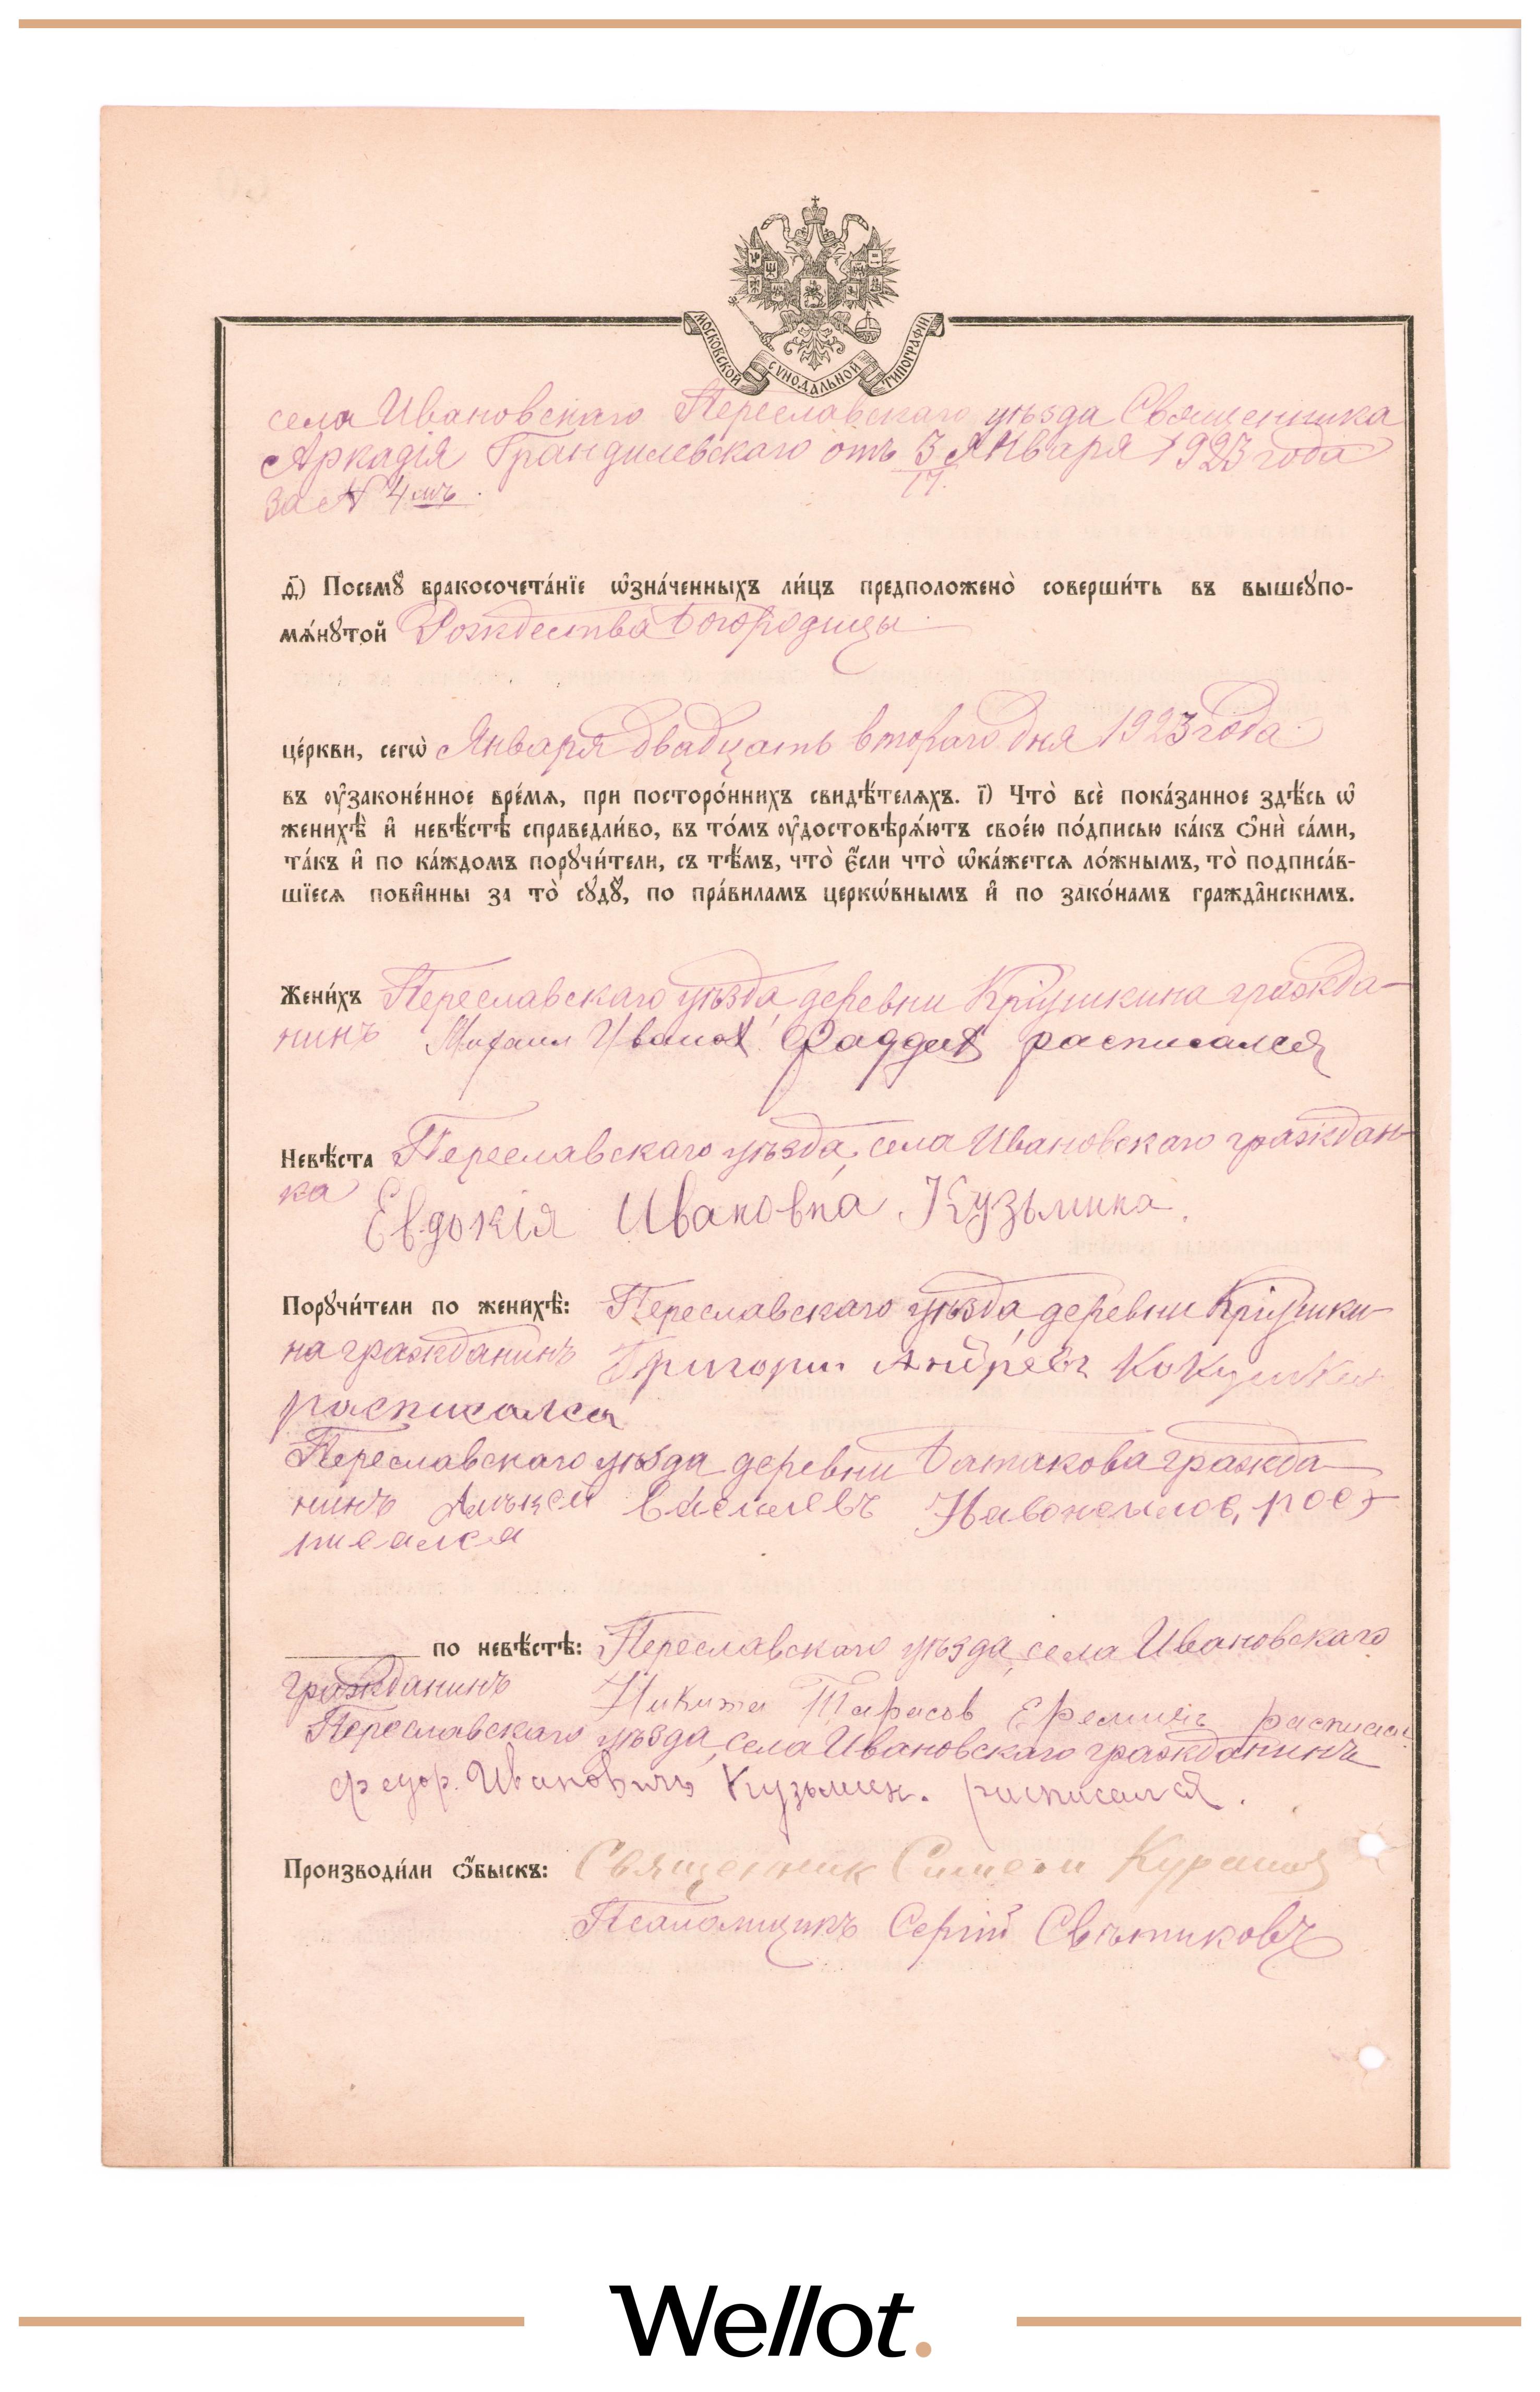 МОСКОВСКОЙ СѴНОДАЛЬНОЙ ТИПОГРАФІИ
села Ивановскаго Переславскаго уѣзда Священника
Аркадія Грандилевскаго отъ 3/17. Января 1923 года
за № 4мъ.
д҃) Посемꙋ̀ бракосочета́нїе ѡ҆зна́ченныхъ ли́цъ предположено̀ соверши́ть въ вышеꙋпо-
мѧ́нꙋтой Рождества Богородицы
це́ркви, сегѡ̀ Января двадцать втораго дня 1923 года
въ ᲂу҆законе́нное вре́мѧ, при посторо́ннихъ свидѣ́телѧхъ. і҃) Что̀ всѐ пока́занное здѣ́сь ѡ҆
женихѣ̀ и҆ невѣ́стѣ справедли́во, въ то́мъ ᲂу҆достовѣрѧ́ютъ свое́ю по́дписью ка́къ ѻ҆нѝ са́ми,
та́къ и҆ по ка́ждомъ порꙋчи́тели, съ тѣ́мъ, что̀ є҆́сли что̀ ѡ҆ка́жетсѧ ло́жнымъ, то̀ подписа́в-
шїесѧ пови́нны за то̀ сꙋдꙋ̀, по пра́виламъ церкѡ́внымъ и҆ по зако́намъ гражда́нскимъ.
Жени́хъ Переславскаго уѣзда, деревни Кріушкина гражда-
нинъ Михаил Иванов Фаддеев расписался
Невѣ́ста Переславскаго уѣзда, села Ивановскаго граждан-
ка Евдокія Ивановна Кузьмина.
Порꙋчи́тели по женихѣ̀: Переславскаго уѣзда, деревни Кріушки-
на гражданинъ Григори Андреевъ Кокушкин
расписался
Переславскаго уѣзда деревни Ботакова гражда-
нинъ Васильевъ рос
писался
по невѣ́стѣ: Переславскаго уѣзда, села Ивановскаго
гражданинъ Никита Тарасов Еремин расписал
Переславскаго уѣзда, села Ивановскаго гражданинъ
Федор. Ивановичъ Кузьмин. расписался.
Производи́ли ѻ҆́быскъ: Священник Симеон
Псаломщикъ Сергій Свѣтиковъ
Wellot.